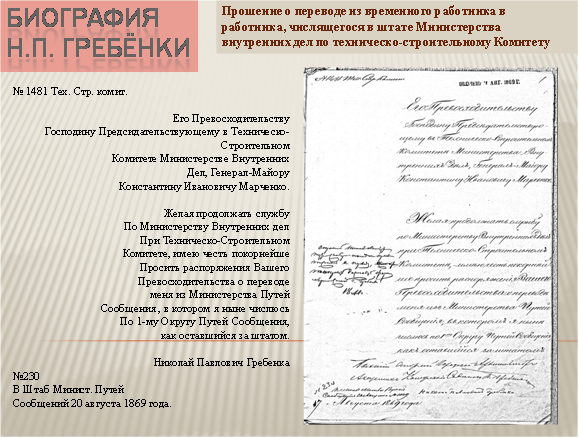 БИОГРАФИЯ
Н.П. ГРЕБЁНКИ
Прошение о переводе из временного работника в
работника, числящегося в штате Министерства
внутренних дел по техническо-строительному Комитету
№ 1481 Тех. Стр. комит.
Его Превосходительству
Господину Предсидательствующему в Техничесю-
Строительном
Комитете Министерстве Внутренних
Дел, Генерал-Майору
Константину Ивановичу Марченко.
Желая продолжать службу
По Министерству Внутренних дел
При Техническо-Строительном
Комитете, имею честь покорнейше
Просить распоряжения Вашего
Превосходительства о переводе
меня из Министерства Путей
Сообщения, в котором я ныне числюсь
По 1-му Округу Путей Сообщения,
как оставшийся за штатом.
Николай Павлович Гребенка
№230
В Штаб Минист. Путей
Сообщений 20 августа 1869 года.
Его Превосходительству
Господину Председательствую-
щему в Техническо-Строительном
Комитете Министерства Вну-
тренних Дел, Генерал-Майору
Константину Ивановичу Марченко
Желая продолжать службу
по Министерству Внутренних дел
при Техническо-Строительном
Комитете, имею честь покорней-
ше просить распоряжения Вашего
Превосходительства о переводе
меня из Министерства Путей
Сообщения, в котором я ныне
числюсь по 1му Округу Путей Сообщения
как оставшийся за штатом
Августа 1869 года